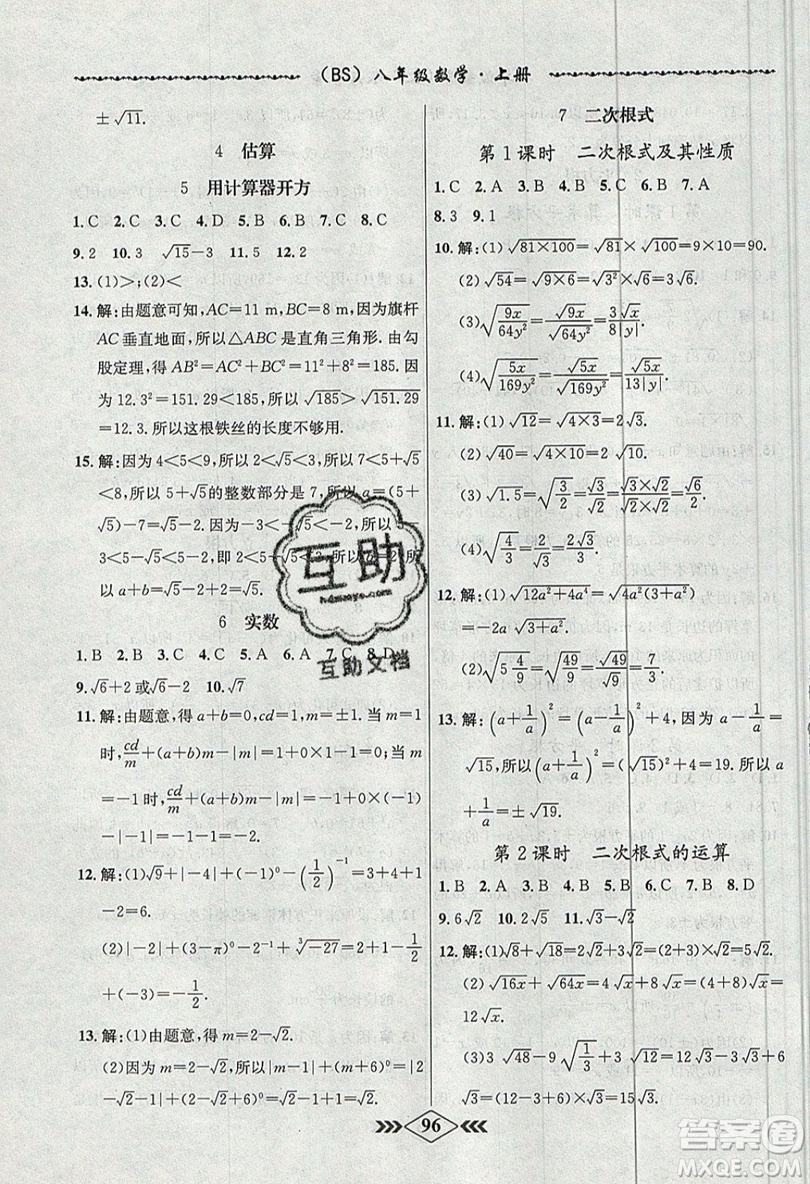 （BS）八年级数学·上册
±√11.
4 估算
5 用计算器开方
1.C 2.A 3.C 4.D 5.B 6.B 7.C 8.C
9.2 10.3 √15−3 11.5 12.2
13.(1)>;(2)<
14.解:由题意可知,AC=11 m,BC=8 m,因为旗杆
AC垂直地面,所以△ABC是直角三角形.由勾
股定理,得AB²=AC²+BC²=11²+8²=185.因
为12.3²=151.29<185,所以√185>√151.29
=12.3.所以这根铁丝的长度不够用.
15.解:因为4<5<9,所以2<√5<3,所以7<5+√5
<8,所以5+√5的整数部分是7,所以a=(5+
√5)−7=√5−2.因为−3<−√5<−2,所以5−
3<5−√5<5−2,即2<5−√5<3,所以b=2,所
以a+b=√5−2+2=√5.
6 实数
1.B 2.B 3.D 4.C 5.A 6.B 7.C 8.D
9.√6+2或√6−2 10.√7
11.解:由题意,得a+b=0,cd=1,m=±1.当m=1
时,cd/m+(a+b)m−|m|=1+0×1−1=0;当m
=−1时,cd/m+(a+b)m−|m|=−1+0×(−1)
−|−1|=−1−1=−2.
12.解:(1)√9+|−4|+(√2−1)⁰−(1/2)⁻¹=3+4+1
−2=6.
(2)−|−2|+(π−3)⁰−2⁻¹+∛−27=−2+1
−1/2−3=−9/2.
13.解:(1)由题意,得m=2−√2.
(2)因为m=2−√2,所以|m−1|+(m+6)⁰=
|2−√2−1|+(2−√2+6)⁰=√2−1+1=√2.
7 二次根式
第1课时 二次根式及其性质
1.C 2.A 3.C 4.C 5.B 6.B 7.A
8.3 9.1
10.解:(1)√81×100=√81×√100=9×10=90.
(2)√54=√9×6=√9×√6=3√6.
(3)√9x/64y²=√9x/√64y²=3√x/8|y|.
(4)√5x/169y²=√5x/√169y²=√5x/13|y|.
11.解:(1)√12=√4×3=2√3.
(2)√40=√4×10=√4×√10=2√10.
(3)√1.5=√3/2=√3/√2=√3×√2/√2×√2=√6/2.
(4)√4/3=2/√3=2√3/√3×√3=2√3/3.
12.解:(1)√12a²+4a⁴=√4a²(3+a²)
=−2a√3+a².
(2)√5 4/9=√49/9=√49/√9=7/3.
13.解:(a+1/a)²=(a−1/a)²+4,因为a−1/a=
√15,所以(a+1/a)²=(√15)²+4=19.所以a
+1/a=±√19.
第2课时 二次根式的运算
1.B 2.B 3.D 4.C 5.A 6.D 7.B 8.D
9.6√2 10.2√5 11.√3−√2
12.解:(1)√8+√18=2√2+3√2=5√2.
(2)√32+√64×2=4√2+8√2=(4+8)√2=
12√2.
(3)3√48−9√1/3+3√12=12√3−3√3+
6√3=(12−3+6)√3=15√3.
96
互助
hdzuoye.com
互助文档
答案圈
MXQE.COM